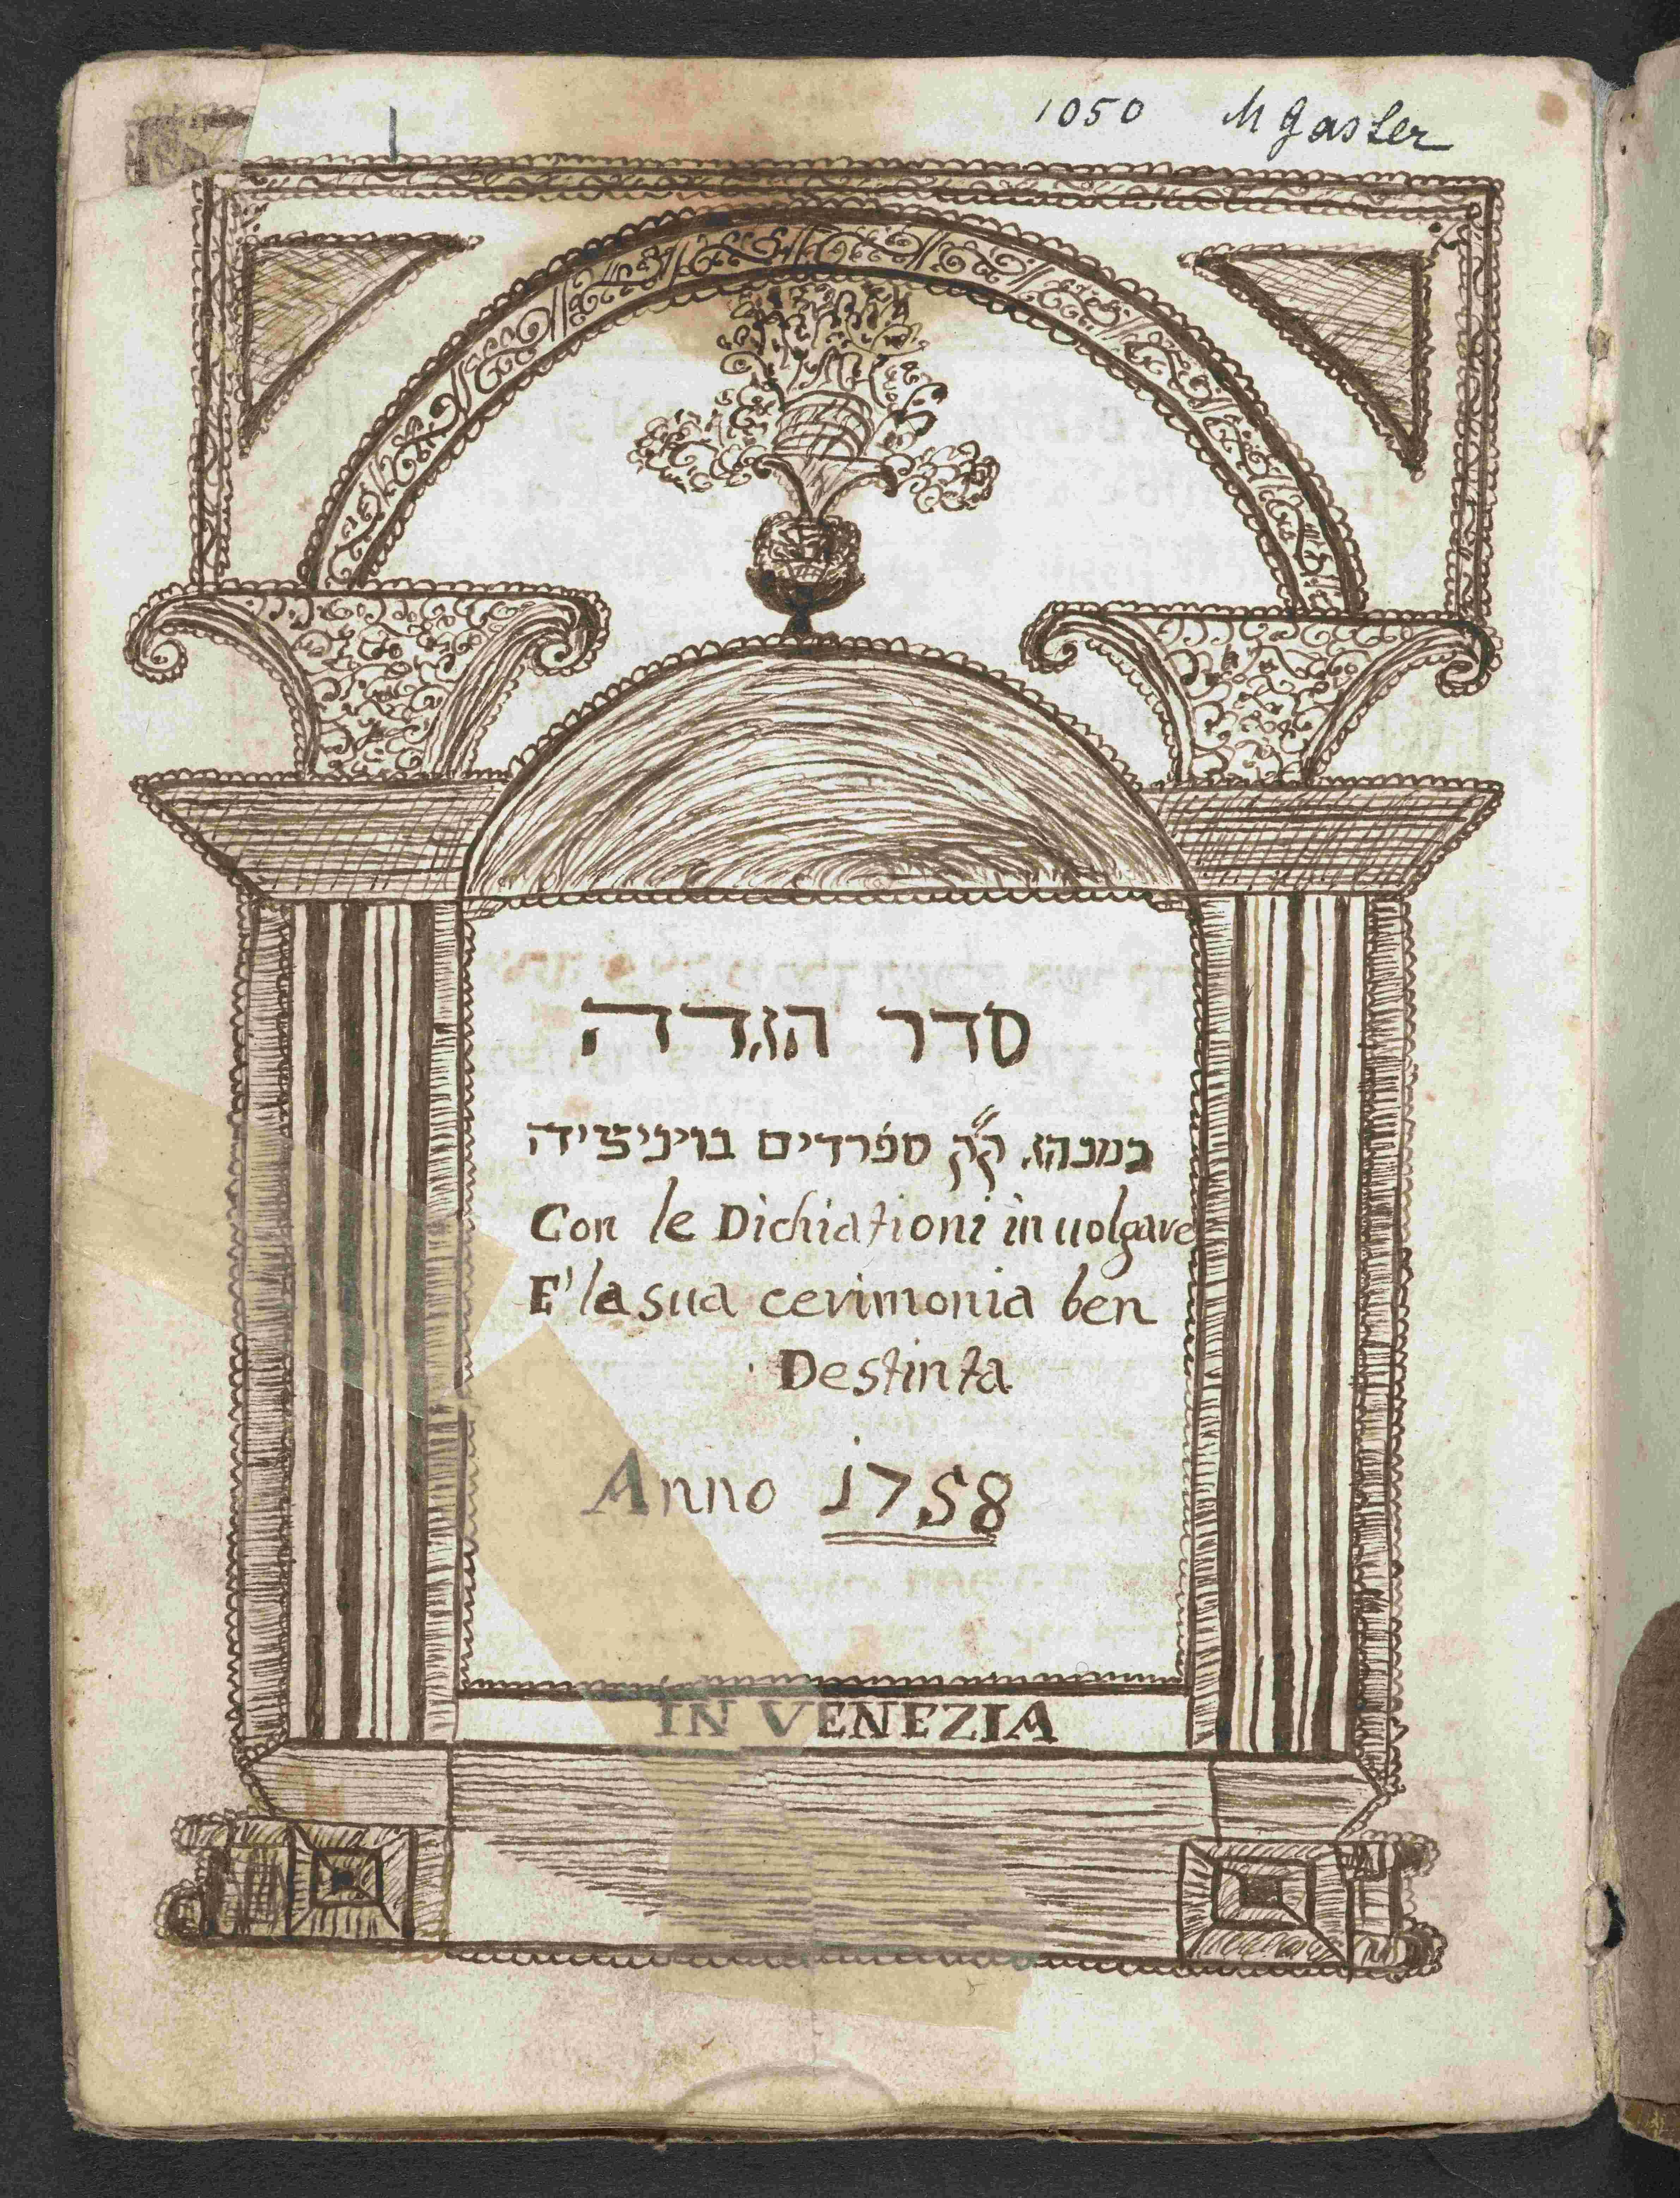 1050 M Gaster
סדר הגדה
כמנהג ק״ק ספרדים בויניציה
Con le Dichiationi in uolgare
E' la sua cerimonia ben
Destinta
Anno 1758
IN VENEZIA